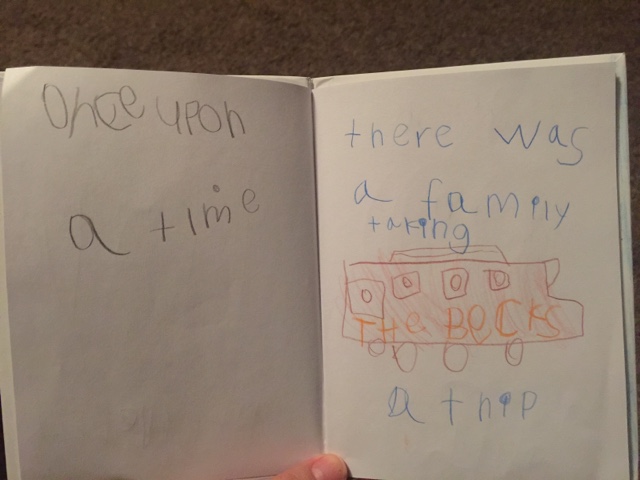 Once upon
a time
there was
a family
taking
THe BeCKS
a trip